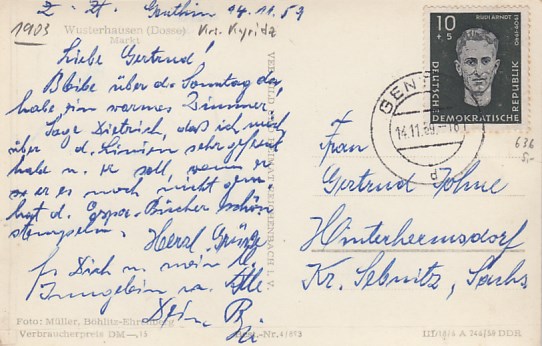 Z. Zt. Genthin 14.11.59
1903
Krs. Kyritz
Wusterhausen (Dosse)
Markt
Liebe Gertrud!
Bleibe über d. Sonntag da,
habe ein warmes Zimmer,
Sage Dietrich, daß ich mich
über d. Linien sehr gefreut
habe u. er soll, wenn er
es noch nicht
hat d. Bücher schön
stempeln. Herzl. Grüße
für Dich u. mein
u. Alle
Dein B
VERLAG BILD UND HEIMAT REICHENBACH I. V.
Foto: Müller, Böhlitz-Ehrenberg
Verbraucherpreis DM —,15
Best.-Nr.
III/18/4 A 746/59 DDR
10
+ 5
RUDI ARNDT
1909-1940
DEUTSCHE
DEMOKRATISCHE
REPUBLIK
GEN
14.11.59.-18
d
636
5,-
Frau
Gertrud
Hinterhermsdorf
Kr. Sebnitz, Sachs